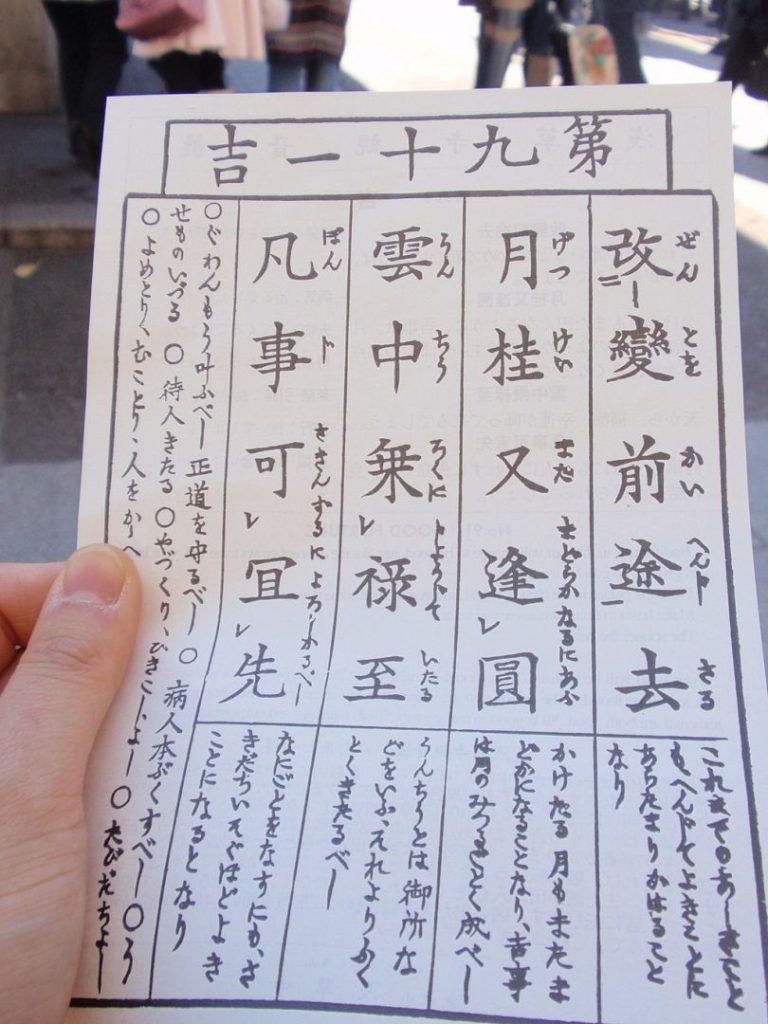 第九十一吉
改變前途去
ぜんとを かい へんド さる
これまでのあしきこと
もへんじてよきことに
あらたまりかはること
なり
月桂又逢圓
げつ けい まだ まどらかなるにあふ
かけたる月もまたま
どかになることなり、吉事
は月のみつるごとく成べし
雲中乗禄至
うん ちう ろくに じようじて いたる
うんちうとは御所な
どをいふ、それよりふく
とくきたるべし
凡事可宜先
ぼん ド きさんするによろしかるべし
なにごとをなすにも、さ
きだちいそぐほどよき
ことになるとなり
○ぐわんもう叶ふべし 正道を守るべし ○ 病人本ぶくすべし ○う
せものいづる ○ 待人きたる ○やづくり、ひきこしよし ○ たびだちよし
○ よめとり、むことり、人をかゝへ